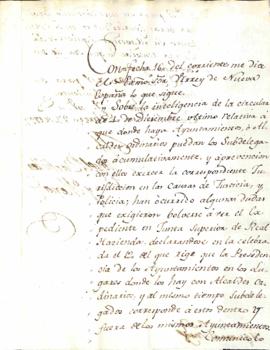 Con fecha 16 del corriente me dice
el Exmo Sor Virrey de Nueva
España lo que sigue
Sobre la inteligencia de la circular
de 4 de diciembre ultimo relativa a
que donde haya Ayuntamiento, o Al
caldes ordinarios puedan los Subdelega
dos acumulativamente, y a prevencion
con ellos exercer la correspondiente Ju
risdiccion en las causas de Justicia, y
Policia; han ocurrido algunas dudas
que exigieron bolverse a ver el Ex
pediente en Junta Superior de Real
Hacienda: declarandose en la celebra
da el 12 del que rige que la Presiden
cia de los Ayuntamientos en los Lu
gares donde los hay con Alcaldes Or
dinarios, y al mismo tiempo Subdele
gados corresponde a estos dentro y
fuera de los mismos Ayuntamientos